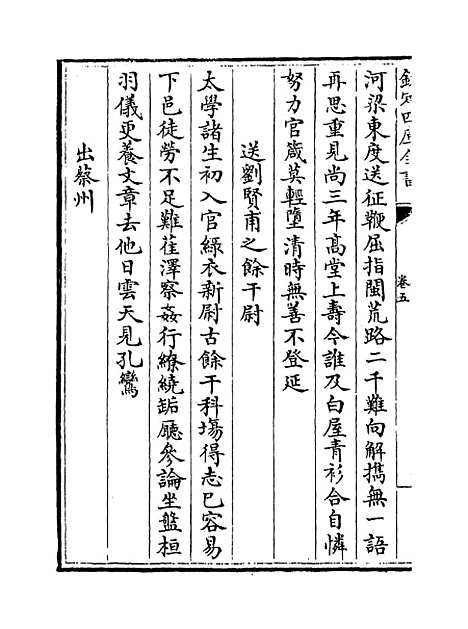 欽定四庫全書
卷五
河梁東度送征鞭屈指閩荒路二千難向解攜無一語
再思重見尚三年髙堂上壽今誰及白屋青衫合自憐
努力官箴莫輕墮清時無善不登延
送劉賢甫之餘干尉
太學諸生初入官綠衣新尉古餘干科場得志已容易
下邑徒勞不足難萑澤察姦行繚繞缿廳參論坐盤桓
羽儀更養文章去他日雲天見孔鸞
出蔡州